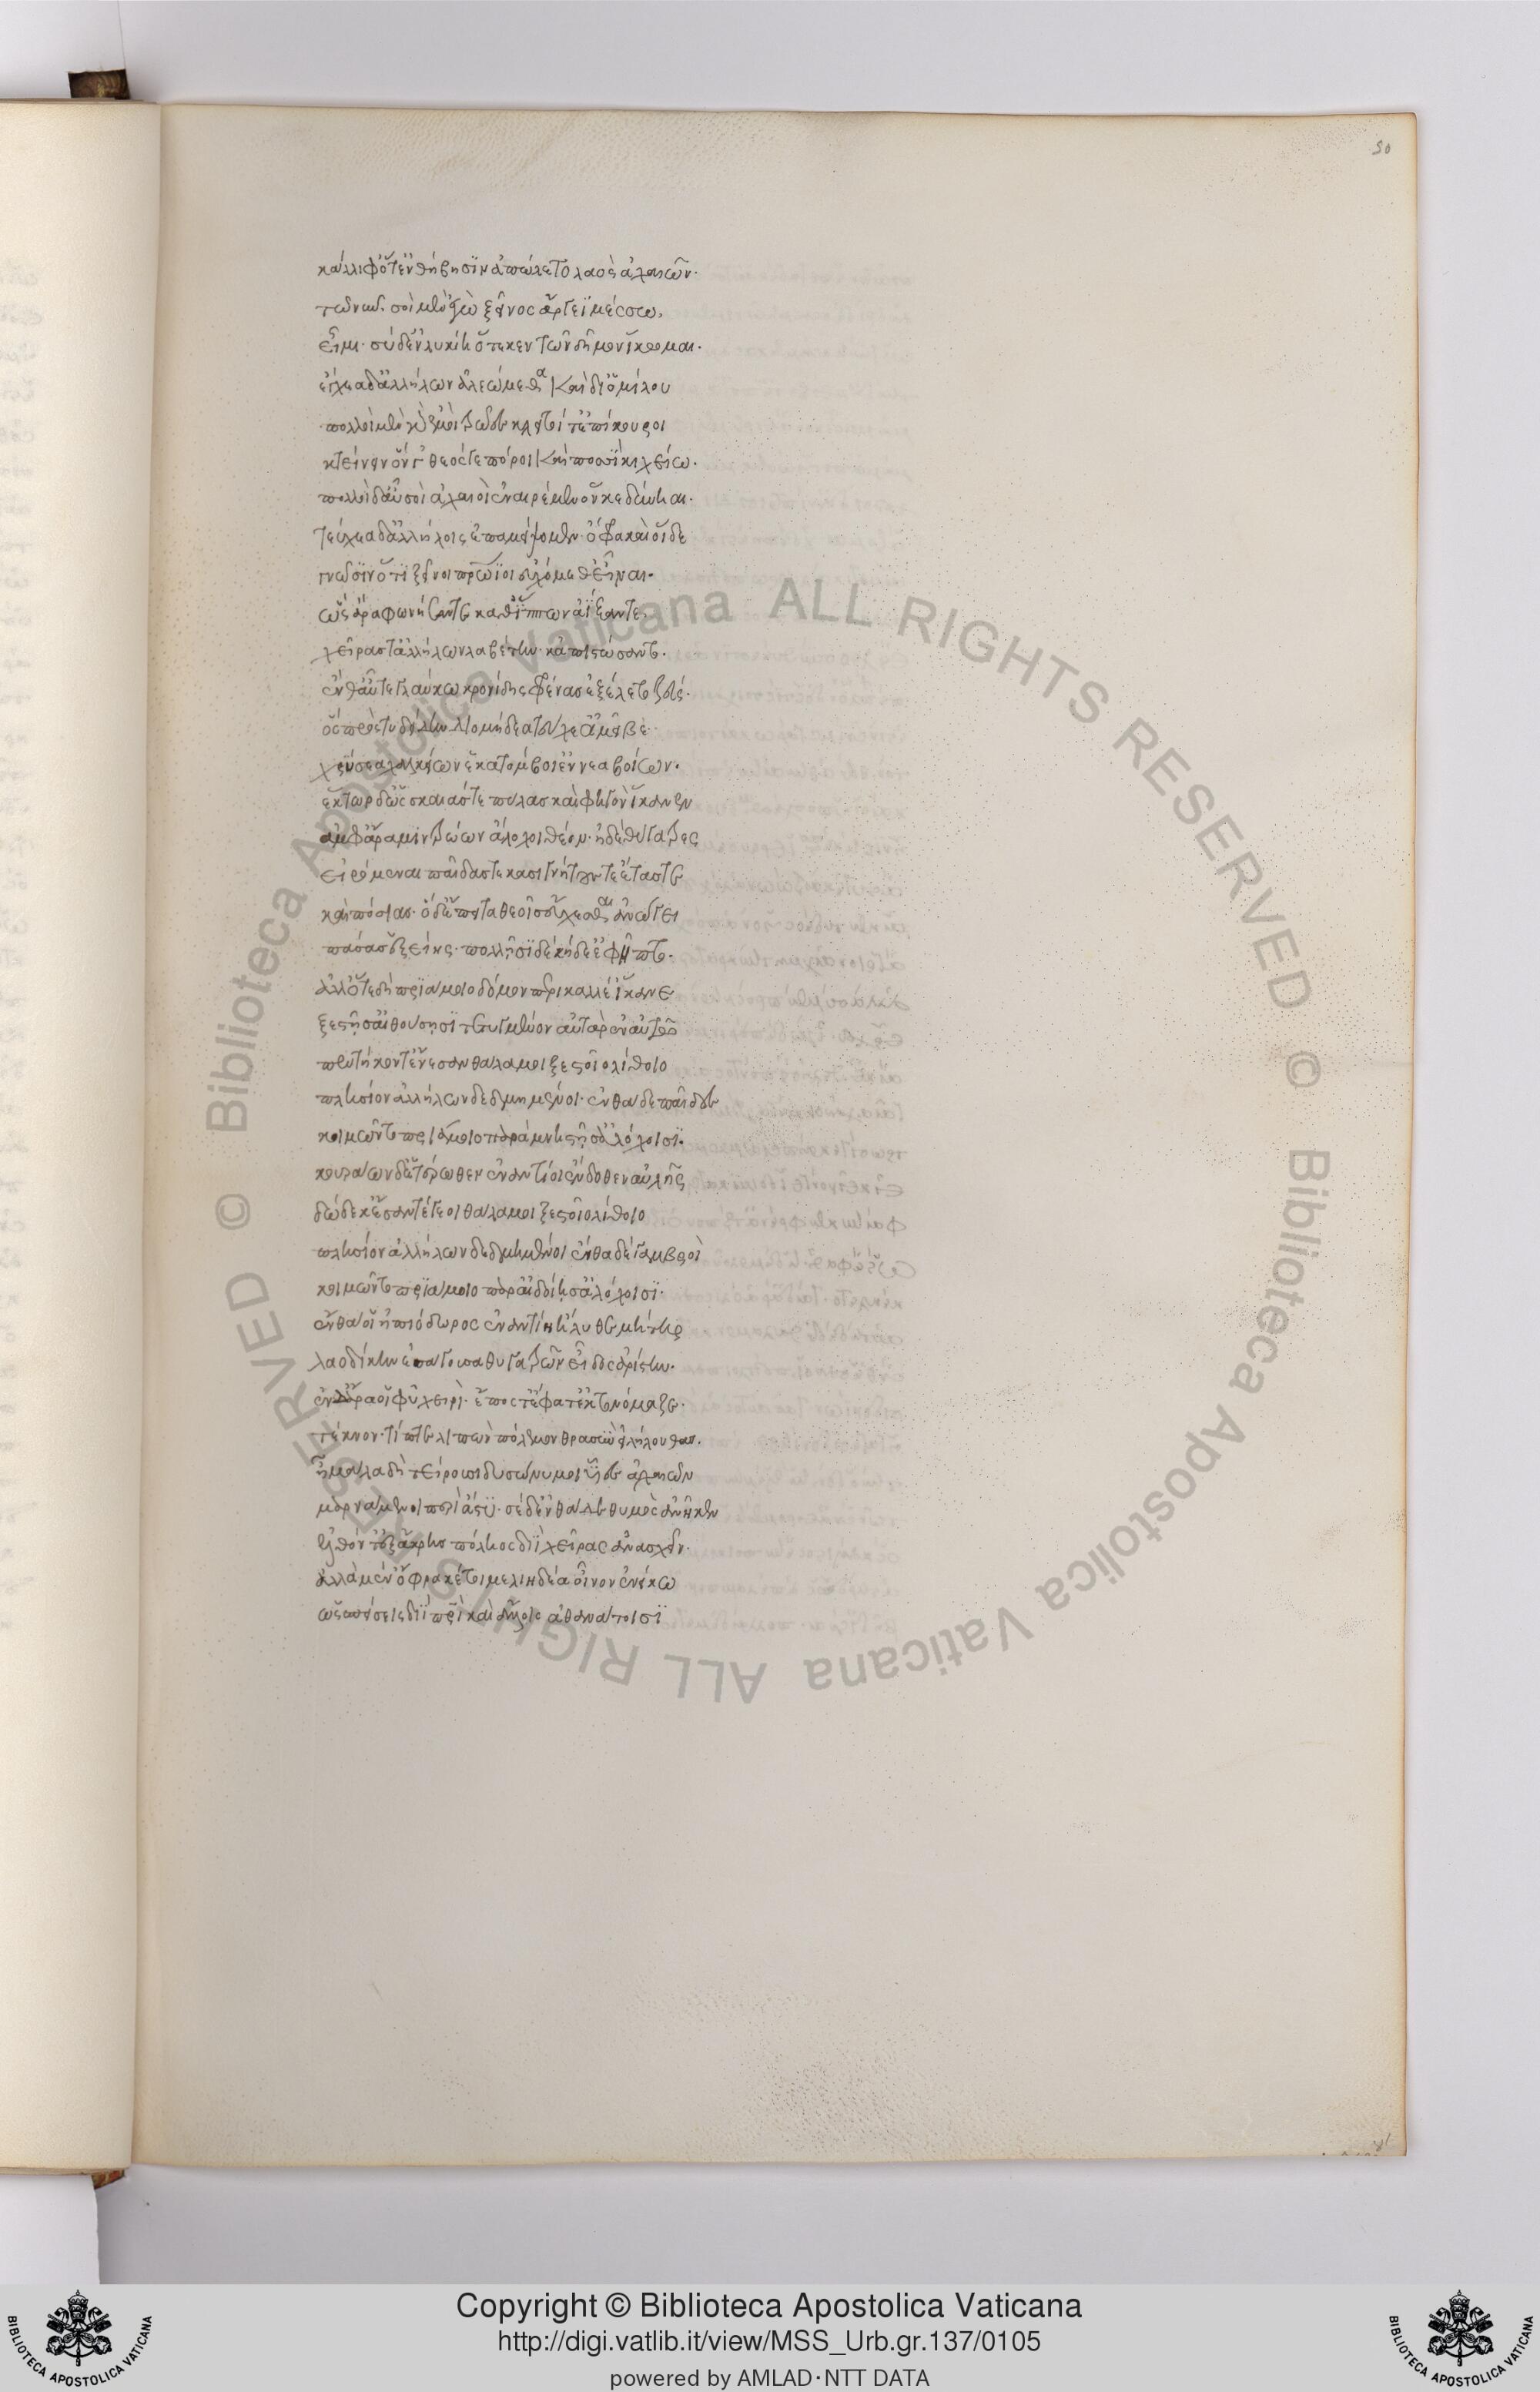 50
κάλλιφ' ὅτ' ἐν θήβησιν ἀπώλετο λαὸς ἀχαιῶν.
τῶ νῦν σοὶ μὲν ἐγὼ ξεῖνος ἄργεϊ μέσσω,
εἰμι· σὺ δ' ἐν λυκίη ὅτε κεν τῶν δῆμον ἵκωμαι.
ἔγχεα δ' ἀλλήλων ἀλεώμεθα καὶ δι' ὁμίλου
πολλοὶ μὲν γὰρ ἐμοὶ τρῶες κλειτοί τ' ἐπίκουροι
κτείνειν ὅν γε θεός γε πόροι καὶ ποσσὶ κιχείω.
πολλοὶ δ' αὖ σοὶ ἀχαιοὶ ἐναιρέμεν ὅν κε δύνηαι.
τεύχεα δ' ἀλλήλοις ἐπαμείψομεν· ὄφρα καὶ οἵδε
γνῶσιν ὅτι ξεῖνοι πατρώϊοι εὐχόμεθ' εἶναι.
ὣς ἄρα φωνήσαντε καθ' ἵππων ἀΐξαντε
χεῖράς τ' ἀλλήλων λαβέτην· καὶ πιστώσαντο.
ἔνθ' αὖτε γλαύκω κρονίδης φρένας ἐξέλετο ζεύς.
ὃς πρὸς τυδείδην διομήδεα τεύχε' ἄμειβε
χρύσεα χαλκείων ἑκατόμβοι' ἐννεαβοίων.
ἕκτωρ δ' ὡς σκαιάς τε πύλας καὶ φηγὸν ἵκανεν
ἀμφ' ἄρα μιν τρώων ἄλοχοι θέον· ἠδὲ θύγατρες
εἰρόμεναι παῖδάς τε κασιγνήτους τε ἔτας τε
καὶ πόσιας· ὁ δ' ἔπειτα θεοῖς εὔχεσθαι ἀνώγει
πάσας ἑξείης· πολλῆσι δὲ κήδε' ἐφῆπτο.
ἀλλ' ὅτε δὴ πριάμοιο δόμον περικαλλέ' ἵκανε
ξεστῆς αἰθούσησι τετυγμένον αὐτὰρ ἐν αὐτῶ
πεντήκοντ' ἔνεσαν θάλαμοι ξεστοῖο λίθοιο
πλησίον ἀλλήλων δεδμημένοι· ἔνθα δὲ παῖδες
κοιμῶντο πριάμοιο παρὰ μνηστῆς ἀλόχοισι.
κουράων δ' ἑτέρωθεν ἐναντίοι ἔνδοθεν αὐλῆς
δώδεκ' ἔσαν τέγεοι θάλαμοι ξεστοῖο λίθοιο
πλησίον ἀλλήλων δεδμημένοι ἔνθα δὲ γαμβροὶ
κοιμῶντο πριάμοιο παρ' αἰδοίης ἀλόχοισι.
ἔνθα οἱ ἠπιόδωρος ἐναντίη ἤλυθε μήτηρ
λαοδίκην ἐσάγουσα θυγατρῶν εἶδος ἀρίστην.
ἔν τ' ἄρα οἱ φῦ χειρὶ· ἔπος τ' ἔφατ' ἔκ τ' ὀνόμαζε.
τέκνον· τίπτε λιπὼν πόλεμον θρασὺν εἰλήλουθας.
ἦ μάλα δὴ τείρουσι δυσώνυμοι υἷες ἀχαιῶν
μαρνάμενοι περὶ ἄστυ· σὲ δ' ἐνθάδε θυμὸς ἀνῆκεν
ἐλθόντ' ἐξ ἄκρης πόλιος διῒ χεῖρας ἀνασχεῖν.
ἀλλὰ μέν' ὄφρα κέ τοι μελιηδέα οἶνον ἐνείκω
ὡς σπείσεις διῒ πατρὶ καὶ ἄλλοις ἀθανάτοισι
Copyright © Biblioteca Apostolica Vaticana
http://digi.vatlib.it/view/MSS_Urb.gr.137/0105
powered by AMLAD·NTT DATA